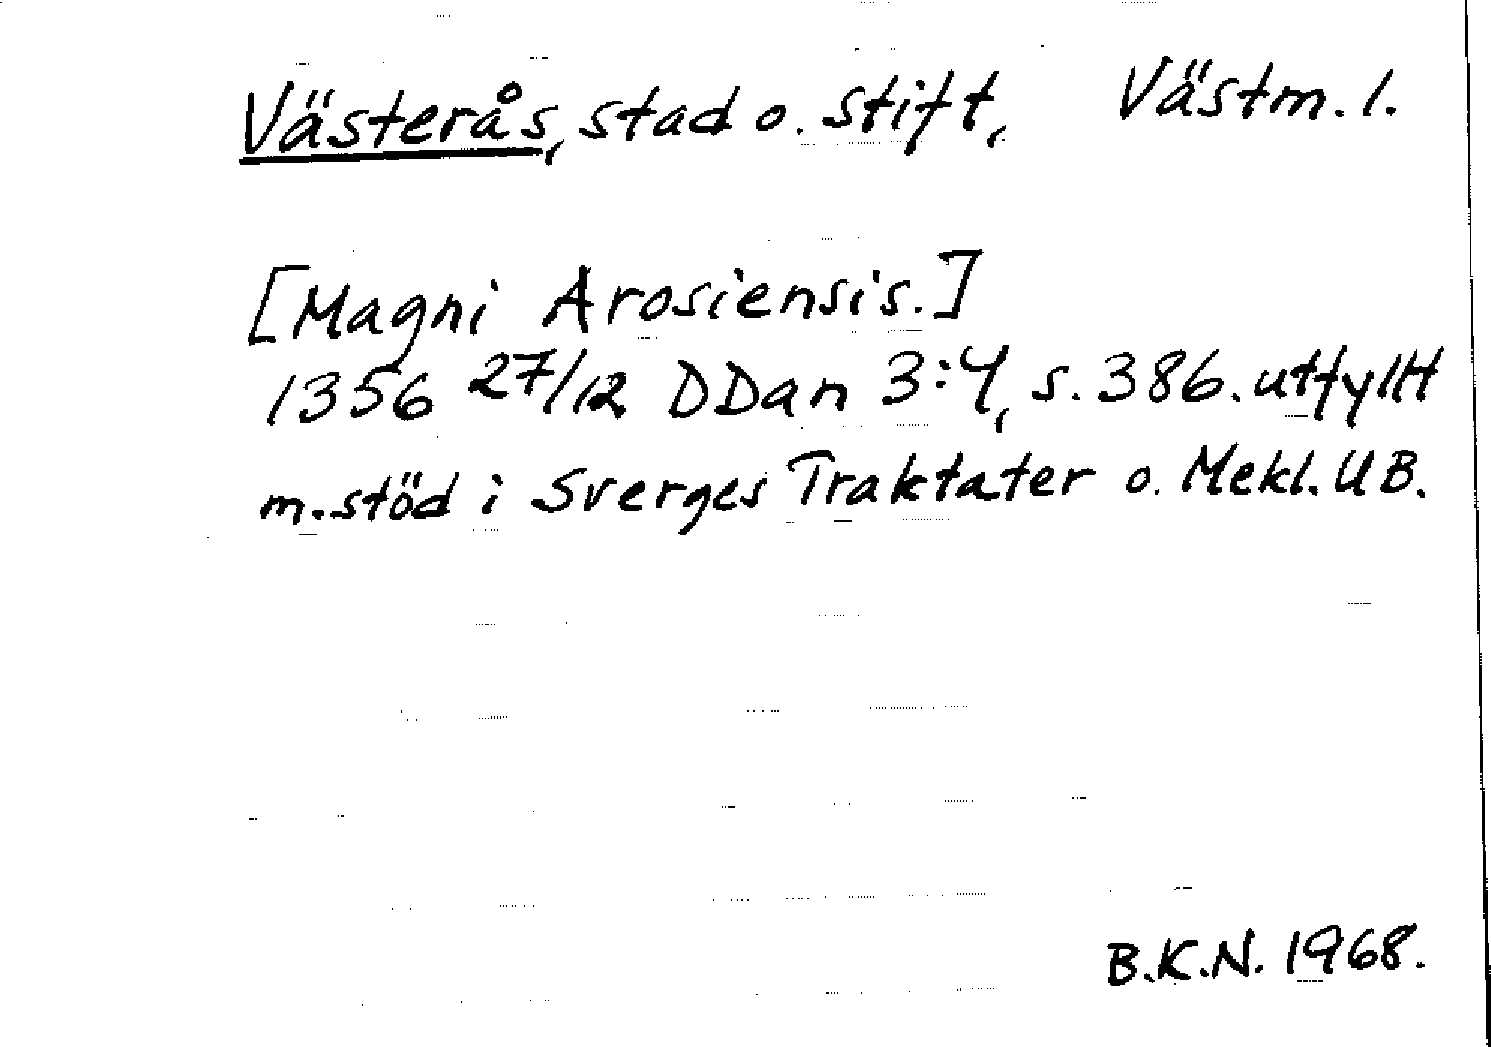 Västerås, stad o. stift, Västm. l.
[Magni Arosiensis.]
1356 27/12 DDan 3:4, s. 386. utfyllt
m. stöd i Sverges Traktater o. Mekl. UB.
B.K.N. 1968.